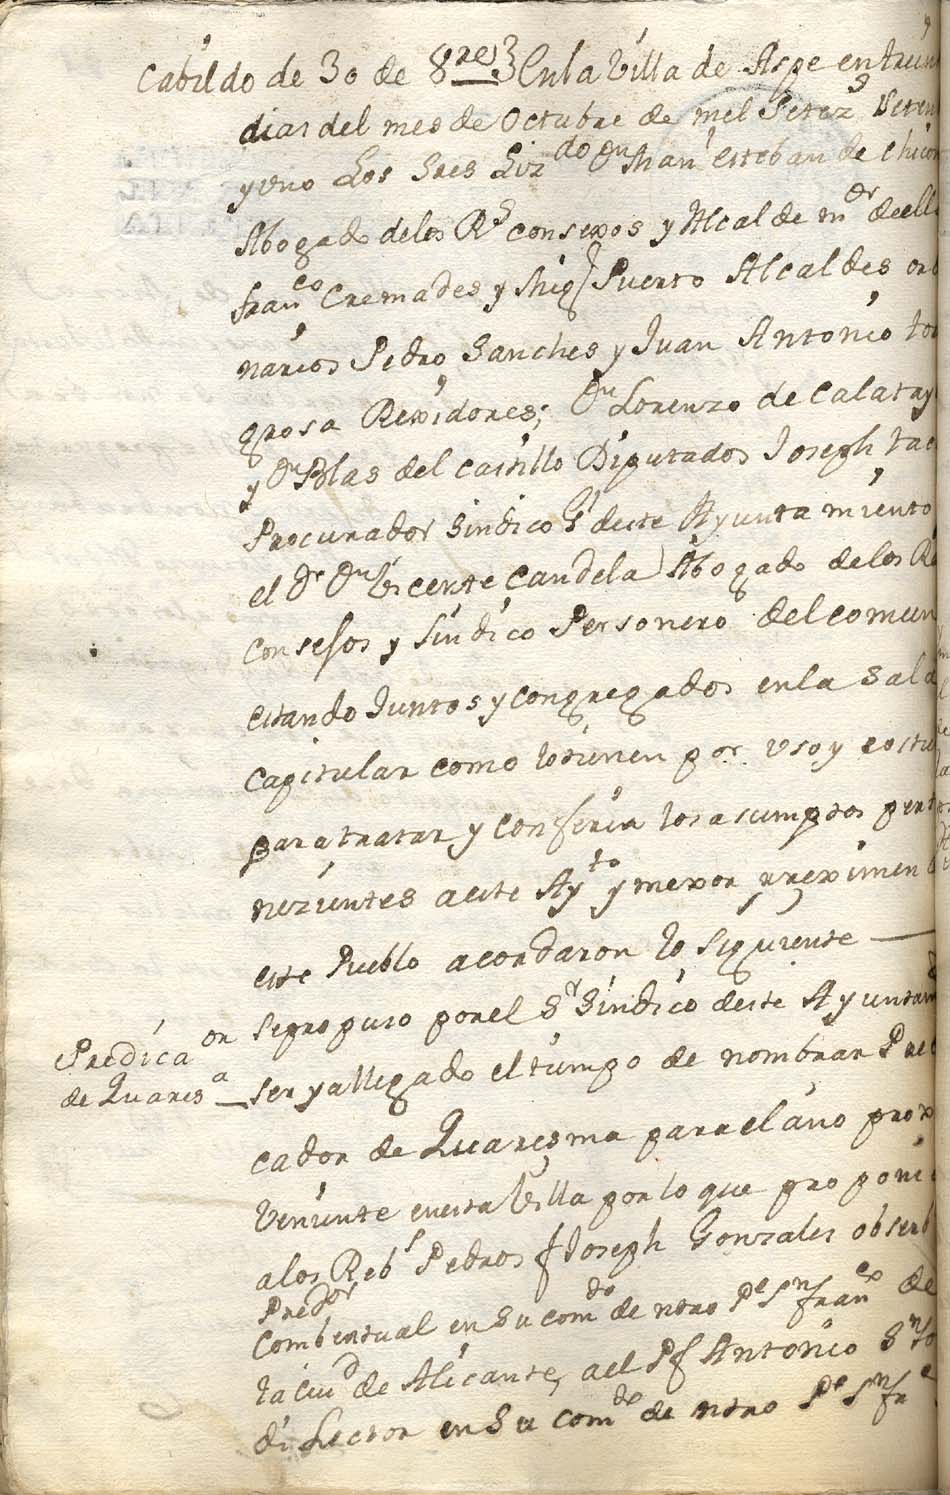 Cabildo de 30 de 8re} En la Villa de Aspe en trein
dias del mes de Octubre de mil Setez.s Seten
y uno Los Sres Lizdo Dn Man.l Esteban de Chico
Abogado delos R.s consexos y Alcalde m.or de ell
Franco Cremades y Mig.l Puerto Alcaldes ord
narios Pedro Sanches y Juan Antonio
grosa Rexidores; Dn Lorenzo de Calatay
y Dn Blas del Castillo Diputados Joseph
Procurador Sindico G.l deste Ayuntamiento
el Dr Dn Vicente Candela Abogado delos R
Consejos y Sindico Personero del comun
estando Juntos y congregados enla Sala
capitular como lo tienen por uso y costu
para tratar y conferir los asumptos pert
nezientes a este Ayto y mexor rreximen
este Pueblo acordaron lo siguiente —
Predica on
de Quares a —
Sepropuso porel Sr Sindico deste Ayuntam
ser ya llegado el tiempo de nombrar Pred
cador de Quaresma parael año prox
veniente enesta Villa por lo que proponi
alos Reb.s Pedros f Joseph Gonzales obserb
Predor
Combentual en su comdo de ntro Pe Sn Franco de
la ciud de Alicante, ael Pf Antonio
di Lector en su comdo de ntro Pe Sn Fr